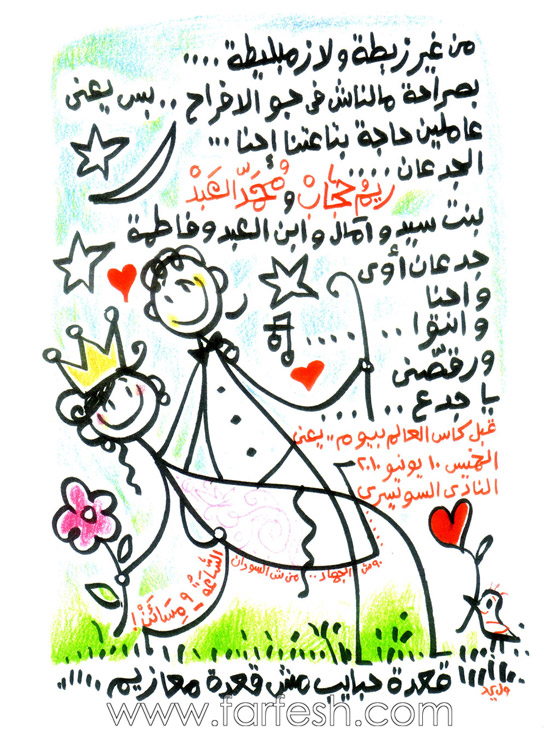 من غير زيطة ولا زمبليطة ....
بصراحة مالناش فى جو الافراح .. بس يعنى
عاملين حاجة بتاعتنا إحنا ...
الجدعان .....
ريم حجاب و محمد العبد
بنت سيد و آمال و ابن العبد و فاطمة
جدعان أوى
واحنا
وانتوا ..
ورقصنى
يا جدع ......
قبل كاس العالم بيوم .. يعنى
الخميس ١٠ يونيو ٢٠١٠
النادى السويسرى
٩٠ ش الجهاد .. من ش السودان
الساعة ٩ مسائن !
قعدة حبايب مش قعدة معازيم .....
وليد
www.farfesh.com